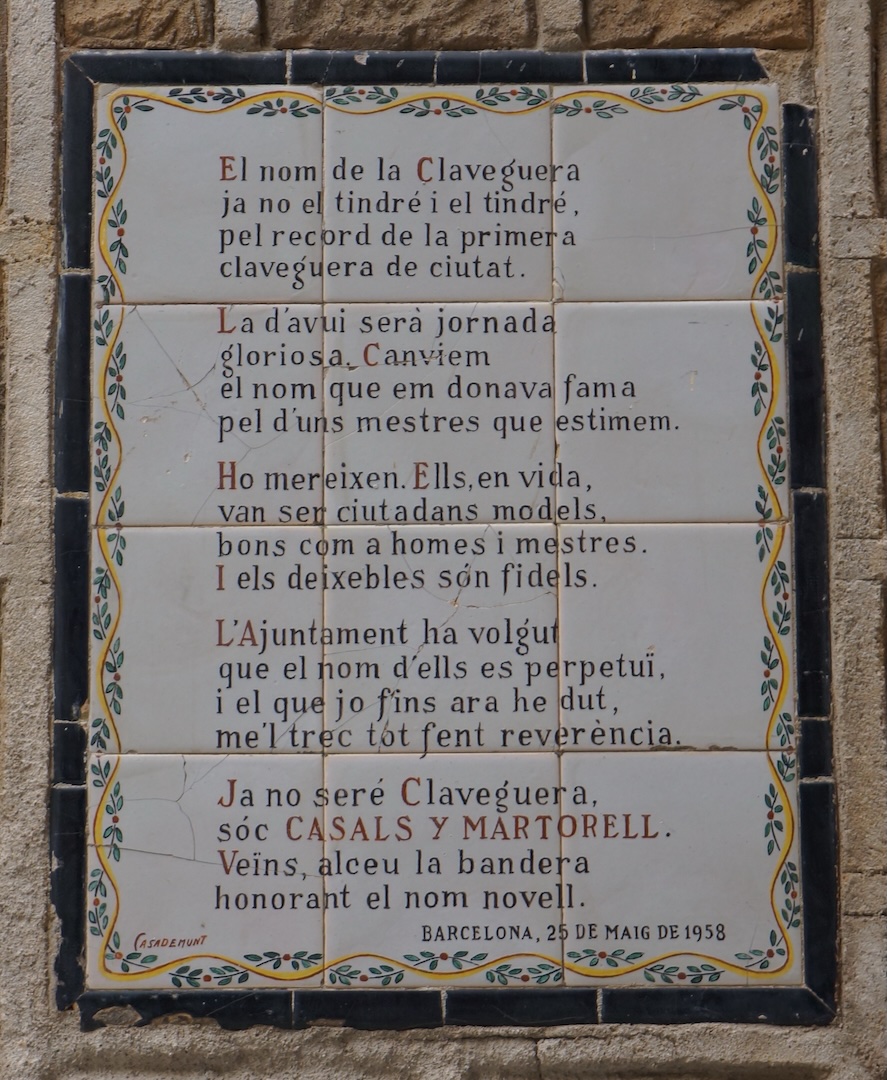 El nom de la Claveguera
ja no el tindré i el tindré,
pel record de la primera
claveguera de ciutat.
La d'avui serà jornada
gloriosa. Canviem
el nom que em donava fama
pel d'uns mestres que estimem.
Ho mereixen. Ells, en vida,
van ser ciutadans models,
bons com a homes i mestres.
I els deixebles són fidels.
L'Ajuntament ha volgut
que el nom d'ells es perpetuï,
i el que jo fins ara he dut,
me'l trec tot fent reverència.
Ja no seré Claveguera,
sóc CASALS Y MARTORELL.
Veïns, alceu la bandera
honorant el nom novell.
CASADEMUNT
BARCELONA, 25 DE MAIG DE 1958